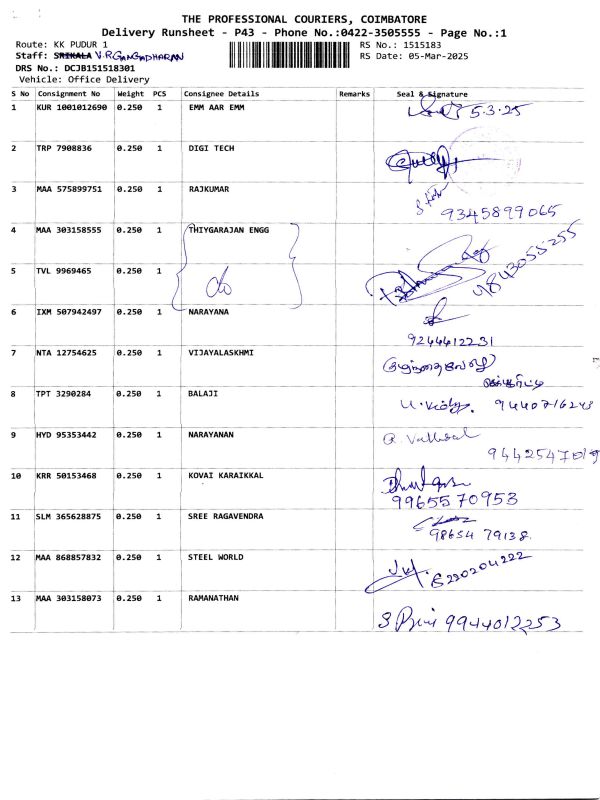 THE PROFESSIONAL COURIERS, COIMBATORE
Delivery Runsheet - P43 - Phone No.:0422-3505555 - Page No.:1
Route: KK PUDUR 1 RS No.: 1515183
Staff: SRIKALA V.R GANGADHARAN RS Date: 05-Mar-2025
DRS No.: DCJB151518301
Vehicle: Office Delivery
S No Consignment No Weight PCS Consignee Details Remarks Seal & Signature
1 KUR 1001012690 0.250 1 EMM AAR EMM 5.3.25
2 TRP 7908836 0.250 1 DIGI TECH
3 MAA 575899751 0.250 1 RAJKUMAR
9345899065
4 MAA 303158555 0.250 1 THIYGARAJAN ENGG
9843055255
5 TVL 9969465 0.250 1 do
6 IXM 507942497 0.250 1 NARAYANA
9244412231
7 NTA 12754625 0.250 1 VIJAYALASKHMI
8 TPT 3290284 0.250 1 BALAJI
9440716243
9 HYD 95353442 0.250 1 NARAYANAN
9442547019
10 KRR 50153468 0.250 1 KOVAI KARAIKKAL
9965570953
11 SLM 365628875 0.250 1 SREE RAGAVENDRA
98654 79138
12 MAA 868857832 0.250 1 STEEL WORLD
8220204222
13 MAA 303158073 0.250 1 RAMANATHAN
9944012253